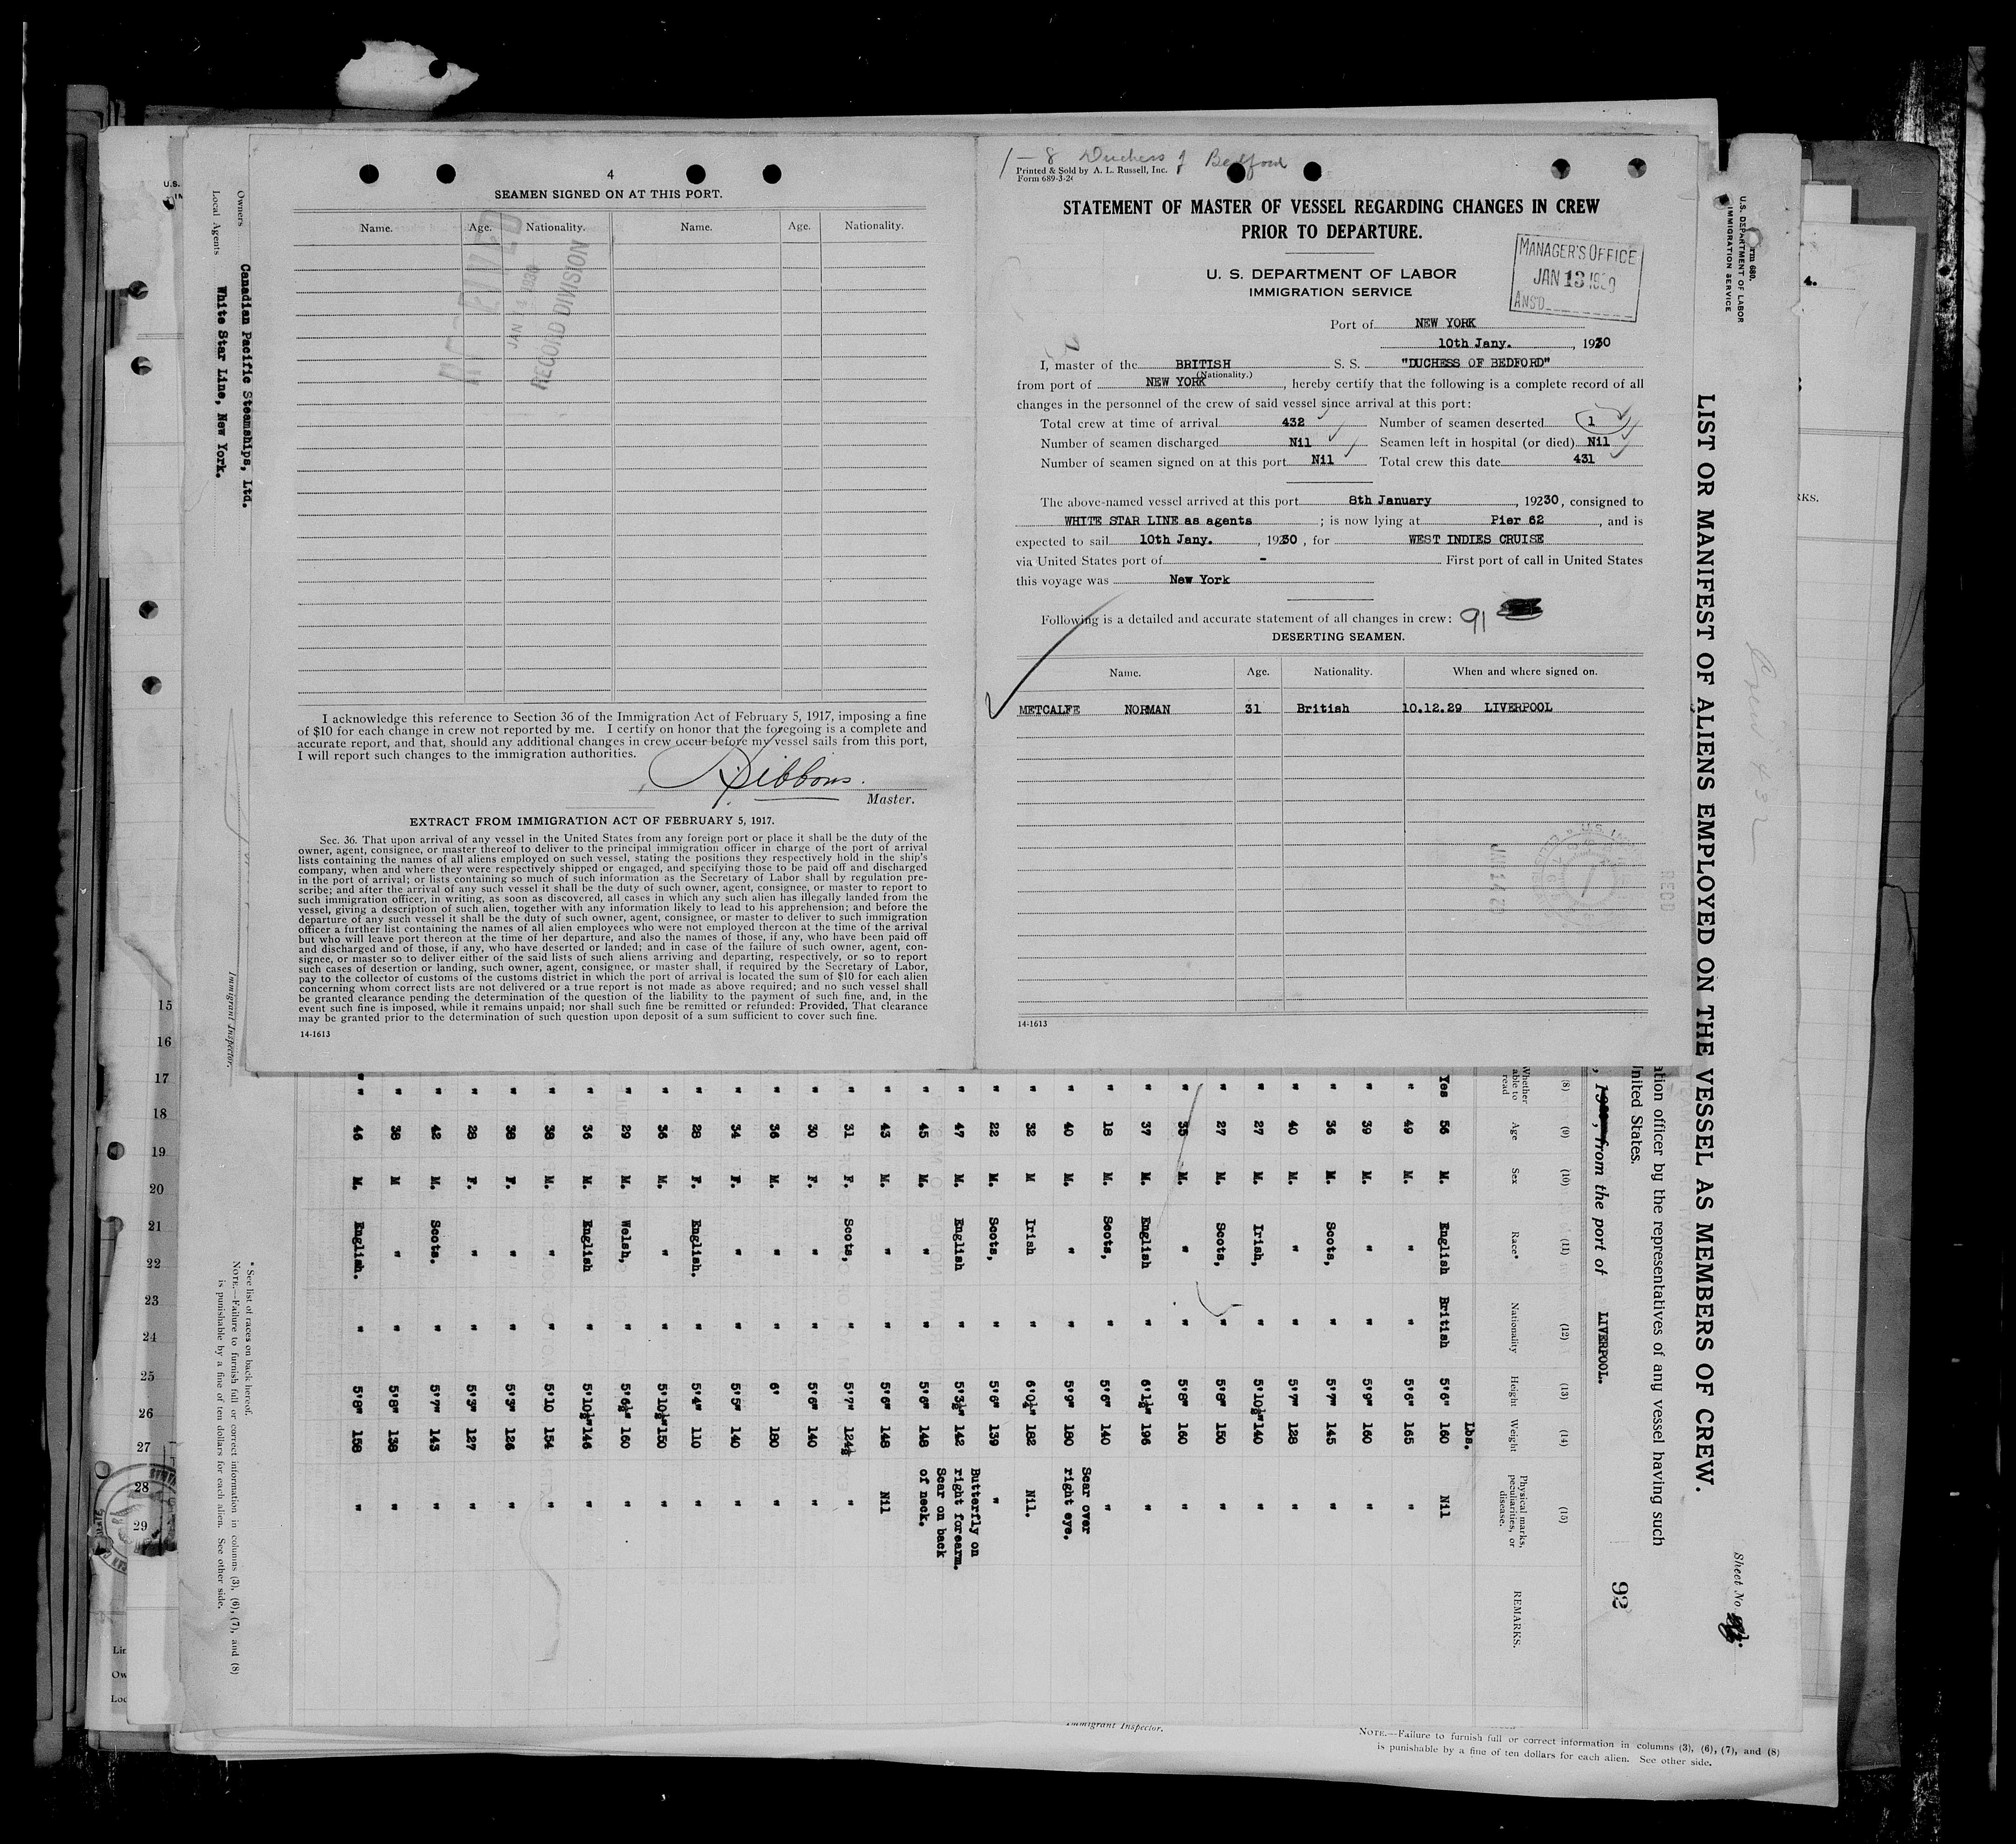 4
SEAMEN SIGNED ON AT THIS PORT.
Name. Age. Nationality. Name. Age. Nationality.
JAN 14 1930
RECORD DIVISION
I acknowledge this reference to Section 36 of the Immigration Act of February 5, 1917, imposing a fine
of $10 for each change in crew not reported by me. I certify on honor that the foregoing is a complete and
accurate report, and that, should any additional changes in crew occur before my vessel sails from this port,
I will report such changes to the immigration authorities.
Gibbons.
Master.
EXTRACT FROM IMMIGRATION ACT OF FEBRUARY 5, 1917.
Sec. 36. That upon arrival of any vessel in the United States from any foreign port or place it shall be the duty of the
owner, agent, consignee, or master thereof to deliver to the principal immigration officer in charge of the port of arrival
lists containing the names of all aliens employed on such vessel, stating the positions they respectively hold in the ship's
company, when and where they were respectively shipped or engaged, and specifying those to be paid off and discharged
in the port of arrival; or lists containing so much of such information as the Secretary of Labor shall by regulation pre-
scribe; and after the arrival of any such vessel it shall be the duty of such owner, agent, consignee, or master to report to
such immigration officer, in writing, as soon as discovered, all cases in which any such alien has illegally landed from the
vessel, giving a description of such alien, together with any information likely to lead to his apprehension; and before the
departure of any such vessel it shall be the duty of such owner, agent, consignee, or master to deliver to such immigration
officer a further list containing the names of all alien employees who were not employed thereon at the time of the arrival
but who will leave port thereon at the time of her departure, and also the names of those, if any, who have been paid off
and discharged and of those, if any, who have deserted or landed; and in case of the failure of such owner, agent, con-
signee, or master so to deliver either of the said lists of such aliens arriving and departing, respectively, or so to report
such cases of desertion or landing, such owner, agent, consignee, or master shall, if required by the Secretary of Labor,
pay to the collector of customs of the customs district in which the port of arrival is located the sum of $10 for each alien
concerning whom correct lists are not delivered or a true report is not made as above required; and no such vessel shall
be granted clearance pending the determination of the question of the liability to the payment of such fine, and, in the
event such fine is imposed, while it remains unpaid; nor shall such fine be remitted or refunded: Provided, That clearance
may be granted prior to the determination of such question upon deposit of a sum sufficient to cover such fine.
14-1613
1-8 Duchess of Bedford
Printed & Sold by A. L. Russell, Inc.
Form 689-3-26
STATEMENT OF MASTER OF VESSEL REGARDING CHANGES IN CREW
PRIOR TO DEPARTURE.
U. S. DEPARTMENT OF LABOR
IMMIGRATION SERVICE
MANAGER'S OFFICE
JAN 13 1930
ANS'D
Port of NEW YORK
10th Jany., 1930
I, master of the BRITISH S. S. "DUCHESS OF BEDFORD"
(Nationality.)
from port of NEW YORK, hereby certify that the following is a complete record of all
changes in the personnel of the crew of said vessel since arrival at this port:
Total crew at time of arrival 432 Number of seamen deserted 1
Number of seamen discharged Nil Seamen left in hospital (or died) Nil
Number of seamen signed on at this port Nil Total crew this date 431
The above-named vessel arrived at this port 8th January, 19230, consigned to
WHITE STAR LINE as agents; is now lying at Pier 62, and is
expected to sail 10th Jany., 1930, for WEST INDIES CRUISE
via United States port of - First port of call in United States
this voyage was New York
Following is a detailed and accurate statement of all changes in crew: 91
DESERTING SEAMEN.
Name. Age. Nationality. When and where signed on.
METCALFE NORMAN 31 British 10.12.29 LIVERPOOL
RECD
14-1613
Form 680.
U.S. DEPARTMENT OF LABOR
IMMIGRATION SERVICE
LIST OR MANIFEST OF ALIENS EMPLOYED ON THE VESSEL AS MEMBERS OF CREW.
Sheet No.
ation officer by the representatives of any vessel having such
United States.
, from the port of LIVERPOOL.
92
(8) (9) (10) (11) (12) (13) (14) (15)
Whether able to read Age Sex Race* Nationality Height Weight Physical marks, peculiarities, or disease. REMARKS.
Lbs.
Yes 56 M. English British 5'6" 160 Nil
" 49 M. " " 5'6" 165 "
" 39 M. " " 5'9" 160 "
" 36 M. Scots, " 5'7" 145 "
" 40 M. " " 5'7" 128 "
" 27 M. Irish, " 5'10½" 140 "
" 27 M. Scots, " 5'8" 150 "
" 35 M. " " 5'8" 160 "
" 37 M. English " 6'1½" 196 "
" 18 M. Scots, " 5'6" 140 "
" 40 M. " " 5'9" 180 Scar over right eye.
" 32 M Irish " 6'0½" 182 Nil.
" 22 M. Scots, " 5'6" 139 "
" 47 M. English " 5'3½" 142 Butterfly on right forearm.
" 45 M. " " 5'6" 148 Scar on back of neck.
" 43 M. " " 5'6" 148 Nil
" 31 F. Scots, " 5'7" 124½ "
" 30 F. " " 5'6" 140 "
" 36 M. " " 6' 180 "
" 34 F. " " 5'5" 140 "
" 28 F. English. " 5'4" 110 "
" 36 M. " " 5'10½" 150 "
" 29 M. Welsh, " 5'6½" 160 "
" 36 M. English " 5'10½" 146 "
" 38 M. " " 5'10 154 "
" 38 F. " " 5'3" 126 "
" 28 F. " " 5'3" 127 "
" 42 M. Scots. " 5'7" 143 "
" 38 M " " 5'8" 138 "
" 46 M. English. " 5'8" 158 "
Owners Canadian Pacific Steamships, Ltd.
Local Agents White Star Line, New York.
Immigrant Inspector.
* See list of races on back hereof.
NOTE.—Failure to furnish full or correct information in columns (3), (6), (7), and (8)
is punishable by a fine of ten dollars for each alien. See other side.
15
16
17
18
19
20
21
22
23
24
25
26
27
28
29
Immigrant Inspector.
NOTE.—Failure to furnish full or correct information in columns (3), (6), (7), and (8)
is punishable by a fine of ten dollars for each alien. See other side.